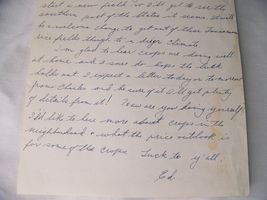 start a new field, so I'll get to see the
southern part of the States it seems. It will
be a welcome change to get out of these Tennessee
rice fields though to a drier climate.
I'm glad to hear crops are doing well
at home and I sure do hope the luck
holds out. I expect a letter today or tomorrow
from Charles and I'm sure if I'll get plenty
of details from it! How are you doing yourself?
I'd like to hear more about crops in the
neighborhood & what the price outlook is
for some of the crops. Luck to y'all,
Ed.